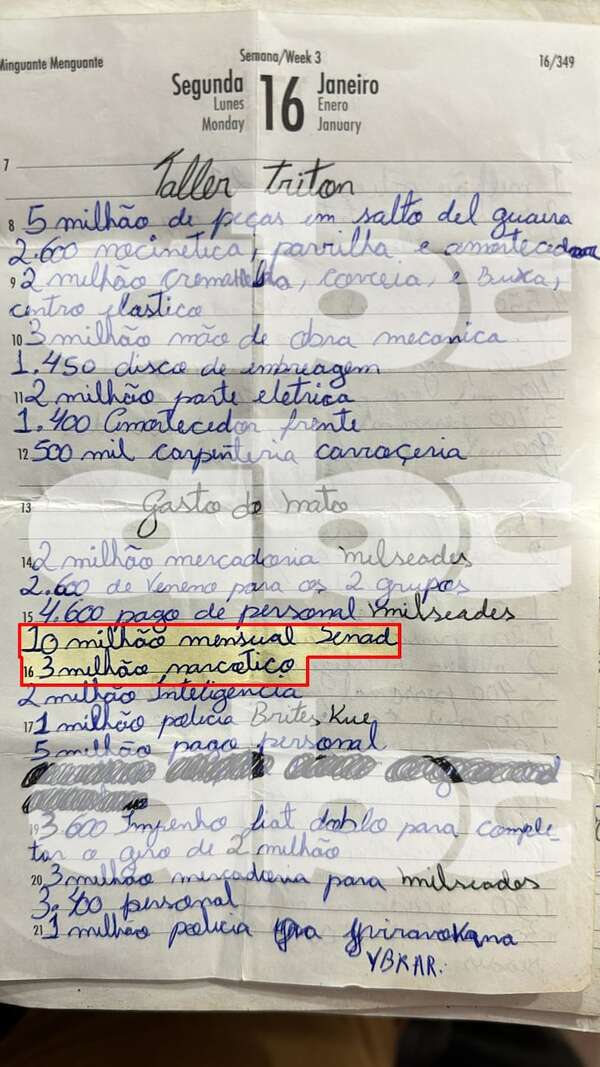 Minguante Menguante
Semana/Week 3
16/349
Segunda
Lunes
Monday
16
Janeiro
Enero
January
7
Taller triton
8 5 milhão de peças em salto del guaira
2.600 nocinetica, parrilha e amortecedor
9 2 milhão correia, e Buxa,
centro elastico
10 3 milhão mão de obra mecanica
1.450 disco de embreagem
11 2 milhão parte eletrica
1.400 Amortecedor frente
12 500 mil carpenteria carroçeria
13 Gasto do mato
14 2 milhão mercadoria milseades
2.600 de veneno para os 2 grupos
15 4.600 pago de personal milseades
10 milhão mensual Senad
16 3 milhão narcotico
2 milhão Inteligencia
17 1 milhão policia Brites Kue
5 milhão pago personal
19 3 600 Impenho fiat doblo para comple-
tar o giro de 2 milhão
20 3 milhão mercadoria para milseades
3.400 personal
21 1 milhão policia pra
YBKAR.
abc